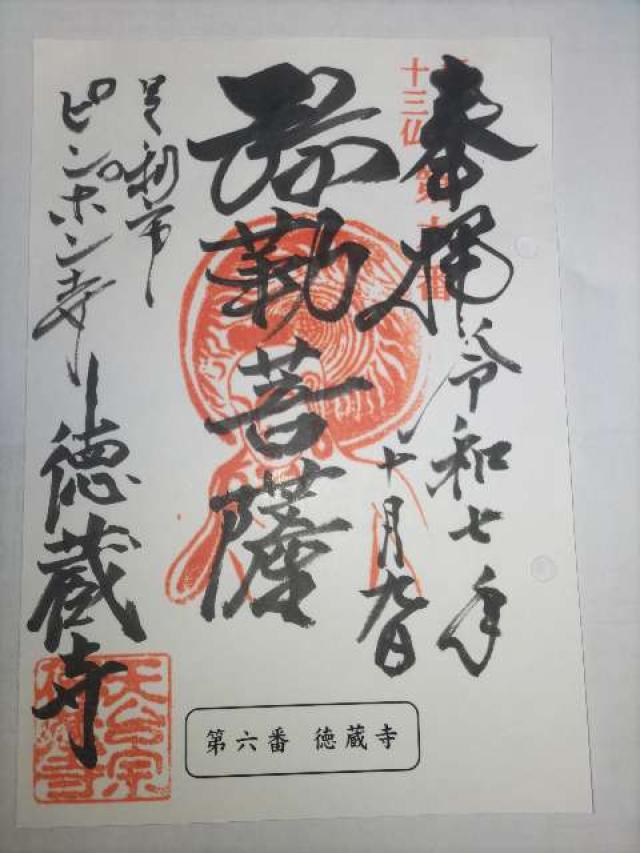 十三仏 第六番
奉拝 令和七年
十月九日
弥勒菩薩
足利市
ピンポン寺
徳蔵寺
天台宗
徳蔵寺
第六番 徳蔵寺